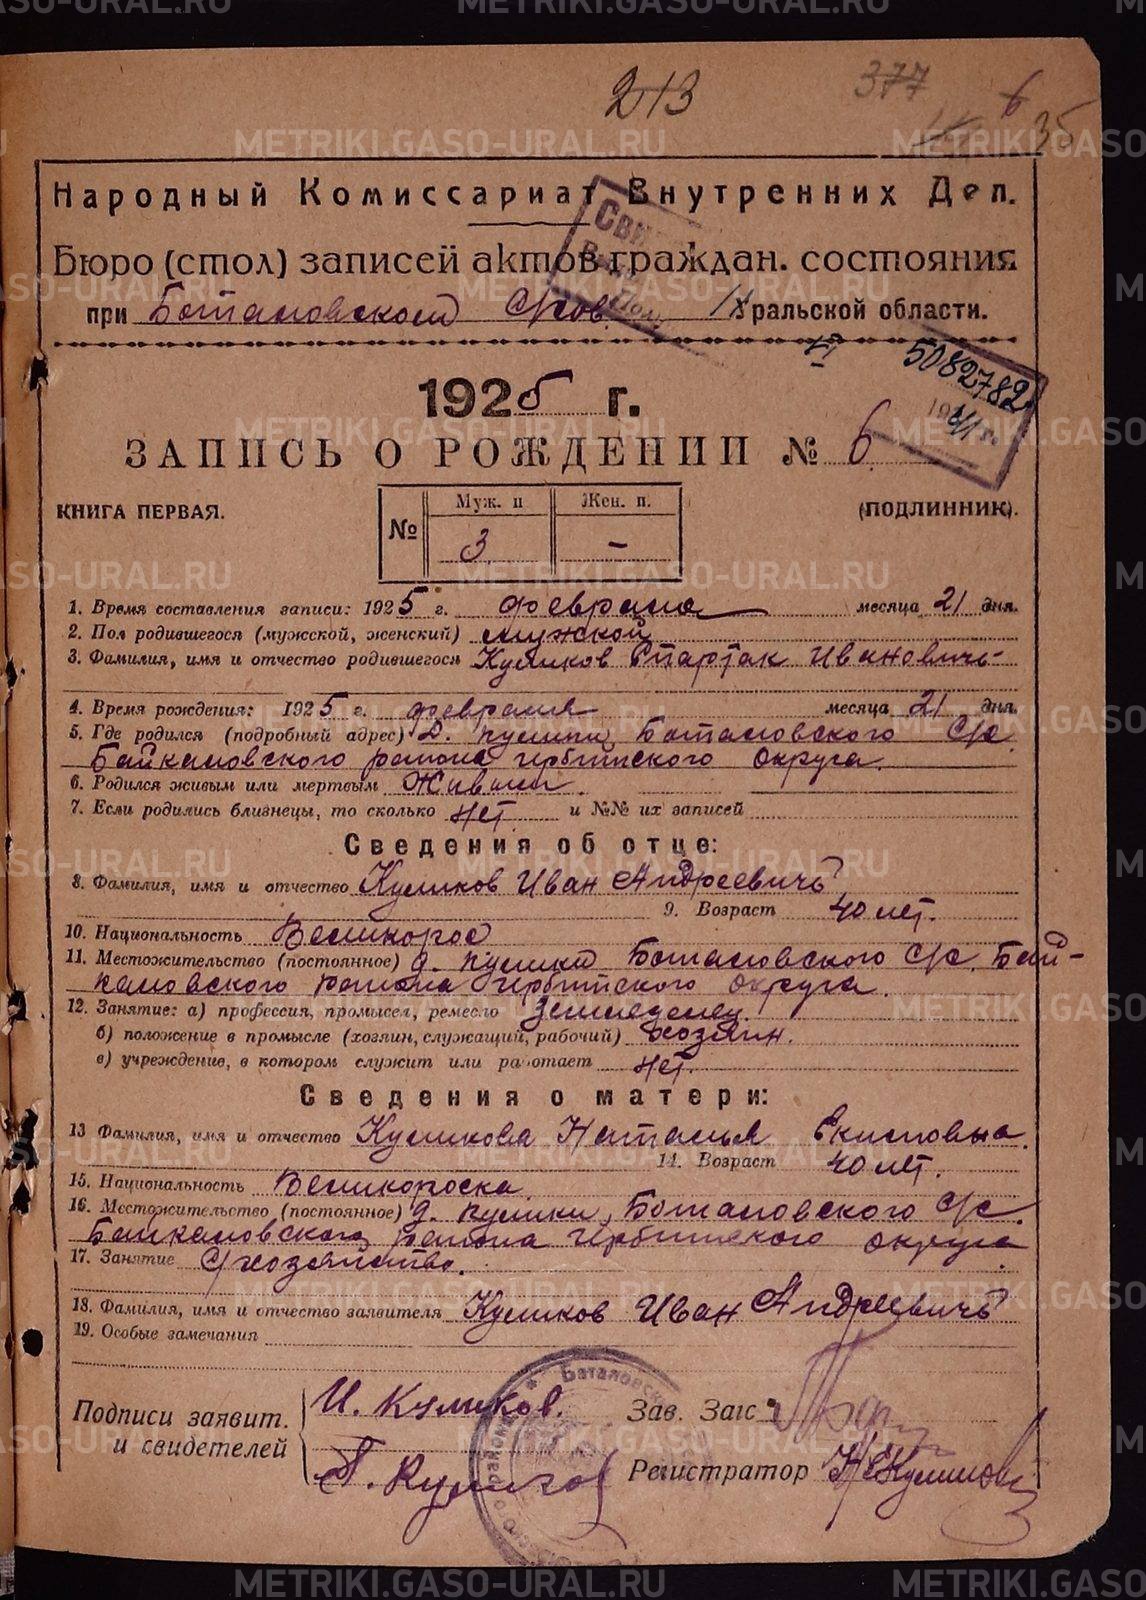 METRIKI.GASO-URAL.RU
213 377 6
35
Народный Комиссариат Внутренних Дел.
Бюро (стол) записей актов граждан. состояния
при Боталовском С/сов. Уральской области.
5082782
1925 г.
ЗАПИСЬ О РОЖДЕНИИ № 6.
КНИГА ПЕРВАЯ. (ПОДЛИННИК).
№ Муж. п Жен. п.
3 –
1. Время составления записи: 1925 г. февраля месяца 21 дня.
2. Пол родившегося (мужской, женский) мужской
3. Фамилия, имя и отчество родившегося Куликов Спартак Ивановичь
4. Время рождения: 1925 г. февраля месяца 21 дня.
5. Где родился (подробный адрес) Д. Кулики Боталовского С/с.
Байкаловского района Ирбитского округа.
6. Родился живым или мертвым Живым.
7. Если родились близнецы, то сколько нет. и №№ их записей
Сведения об отце:
8. Фамилия, имя и отчество Куликов Иван Андреевичь
9. Возраст 40 лет.
10. Национальность Великорос
11. Местожительство (постоянное) д. Кулики Боталовского С/с. Бай-
каловского района Ирбитского округа.
12. Занятие: а) профессия, промысел, ремесло Земледелец.
б) положение в промысле (хозяин, служащий, рабочий) хозяин.
в) учреждение, в котором служит или работает нет.
Сведения о матери:
13 Фамилия, имя и отчество Куликова Наталья
14. Возраст 40 лет.
15. Национальность Великороска.
16. Местожительство (постоянное) д. Кулики, Боталовского С/с.
Байкаловского района Ирбитского округа.
17. Занятие С/хозяйство.
18. Фамилия, имя и отчество заявителя Куликов Иван Андреевичь
19. Особые замечания
Подписи заявит. И. Куликов. Зав. Загс
и свидетелей Куликов Регистратор Куликов